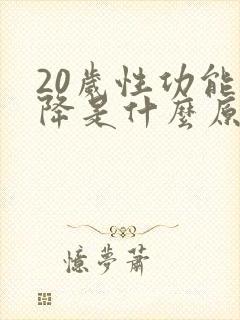 20歲性功能
降是什麼原
憶夢蕭